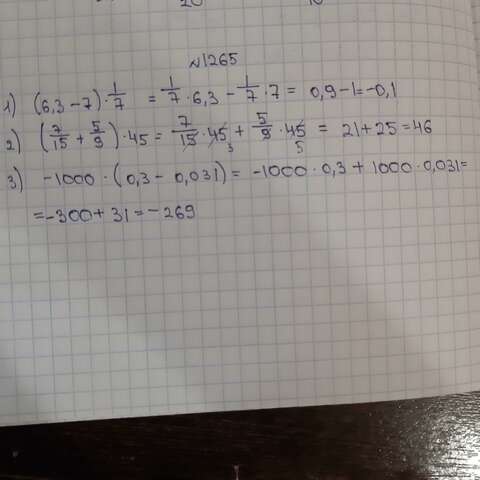 №1265
1) (6,3 - 7) · 1/7 = 1/7 · 6,3 - 1/7 · 7 = 0,9 - 1 = -0,1
2) (7/15 + 5/9) · 45 = 7/15 · 45 3 + 5/9 · 45 5 = 21 + 25 = 46
3) -1000 · (0,3 - 0,031) = -1000 · 0,3 + 1000 · 0,031 =
= -300 + 31 = -269